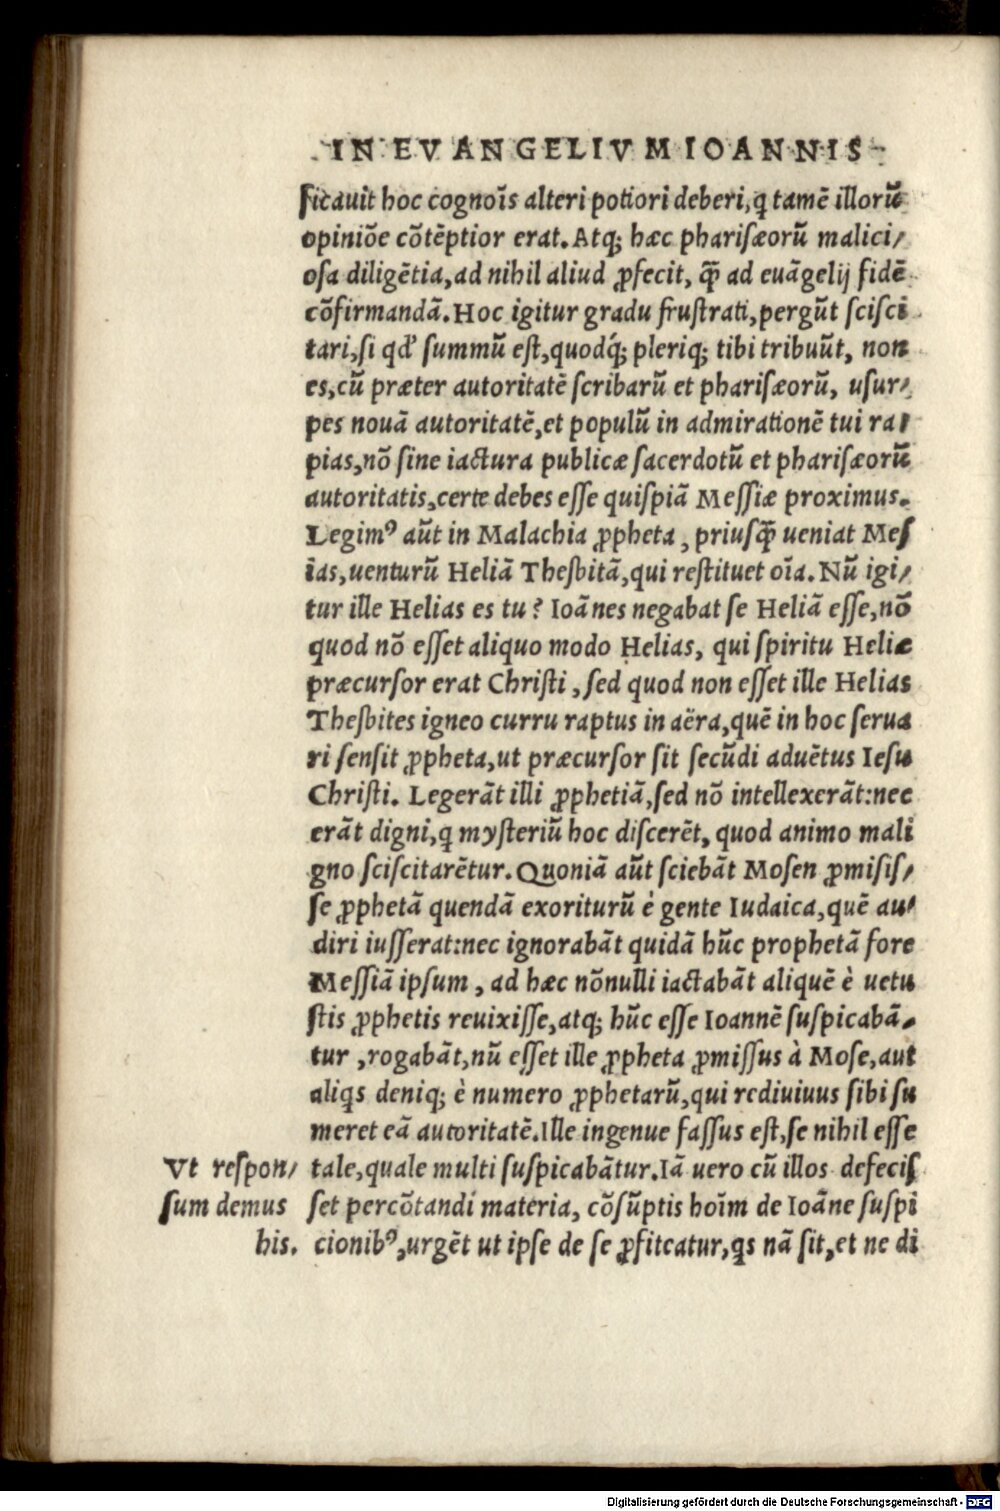 IN EVANGELIVM IOANNIS
ſicauit hoc cognoı̃s alteri potiori deberi, q tamẽ illorũ
opiniõe cõtẽptior erat. Atq; hæc phariſæorũ malici/
oſa diligẽtia, ad nihil aliud ꝓfecit, q̃ ad euãgelij fidẽ
cõfirmandã. Hoc igitur gradu fruſtrati, pergũt ſciſci
tari, ſi qd' ſummũ eſt, quodq́; pleriq; tibi tribuũt, non
es, cũ præter autoritatẽ ſcribarũ et phariſæorũ, uſur/
pes nouã autoritatẽ, et populũ in admirationẽ tui ra/
pias, nõ ſine iactura publicæ ſacerdotũ et phariſæorũ
autoritatis, certe debes eſſe quiſpiã Meſſiæ proximus.
Legimꝰ aũt in Malachia ꝓpheta, priuſq̃ ueniat Meſ
ias, uenturũ Heliã Theſbitã, qui reſtituet oı̃a. Nũ igi/
tur ille Helias es tu? Ioãnes negabat ſe Heliã eſſe, nõ
quod nõ eſſet aliquo modo Helias, qui ſpiritu Heliæ
præcurſor erat Chriſti, ſed quod non eſſet ille Helias
Theſbites igneo curru raptus in aëra, quẽ in hoc ſerua
ri ſenſit ꝓpheta, ut præcurſor ſit ſecũdi aduẽtus Ieſu
Chriſti. Legerãt illi ꝓphetiã, ſed nõ intellexerãt: nec
erãt digni, q myſteriũ hoc diſcerẽt, quod animo mali
gno ſciſcitarẽtur. Quoniã aũt ſciebãt Moſen ꝓmiſiſ/
ſe ꝓphetã quendã exoriturũ è gente Iudaica, quẽ au/
diri iuſſerat: nec ignorabãt quidã hũc prophetã fore
Meſſiã ipſum, ad hæc nõnulli iactabãt aliquẽ è uetu
ſtis ꝓphetis reuixiſſe, atq; hũc eſſe Ioannẽ ſuſpicabã/
tur, rogabãt, nũ eſſet ille ꝓpheta ꝓmiſſus à Moſe, aut
aliqs deniq; è numero ꝓphetarũ, qui rediuiuus ſibi ſu
meret eã autoritatẽ. Ille ingenue faſſus eſt, ſe nihil eſſe
tale, quale multi ſuſpicabãtur. Iã uero cũ illos defeciſ
ſet percõtandi materia, cõſũptis hoı̃m de Ioãne ſuſpi
cionibꝰ, urgẽt ut ipſe de ſe ꝓfiteatur, qs nã ſit, et ne di
Vt reſpon/
ſum demus
his.
Digitalisierung gefördert durch die Deutsche Forschungsgemeinschaft - DFG